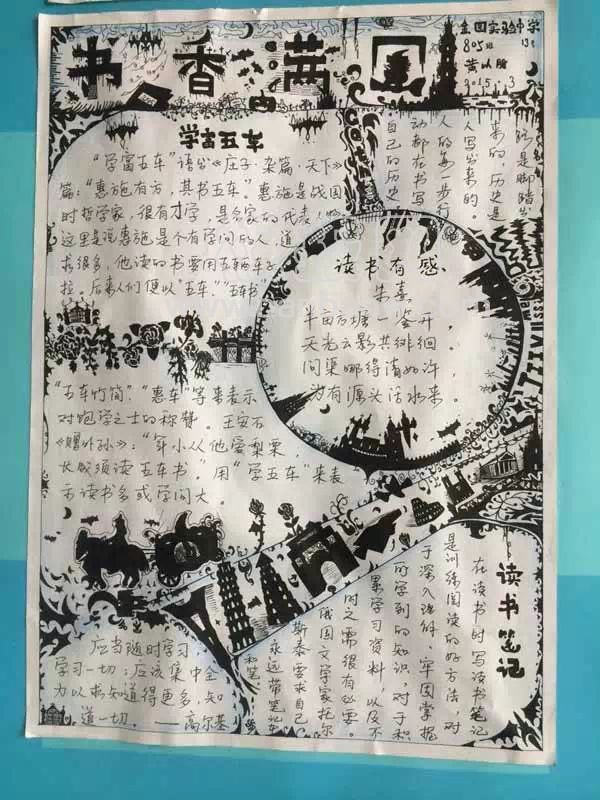 书香满园
金园实验中学
805班 13号
2015.3
学富五车
"学富五车"语出《庄子·杂篇·天下》
篇:"惠施有方,其书五车。"惠施是战国
时哲学家,很有才学,是名家的代表人物
这里是说惠施是个有学问的人,道
术很多,他读的书要用五辆车子
拉,后来人们便以"五车""五车书"
"五车竹简""惠车"等来表示
对饱学之士的称赞。王安石
《赠外孙》:"年小从他爱梨栗,
长成须读五车书。"用"学五车"来表
示读书多或学问大。
路是脚踏出
来的,历史是
人写出来的。
人的每一步行
动都在书写
自己的历史
读书有感
朱熹
半亩方塘一鉴开,
天光云影共徘徊。
问渠哪得清如许,
为有源头活水来。
应当随时学习,
学习一切;应该集中全
力以求知道得更多,知
道一切。——高尔基
读书笔记
在读书时写读书笔记
是训练阅读的好方法,对
于深入理解、牢固掌握
所学到的知识,对于积
累学习资料,以及不
时之需很有必要。
俄国文学家托尔
斯泰要求自己
永远带笔记本
和笔